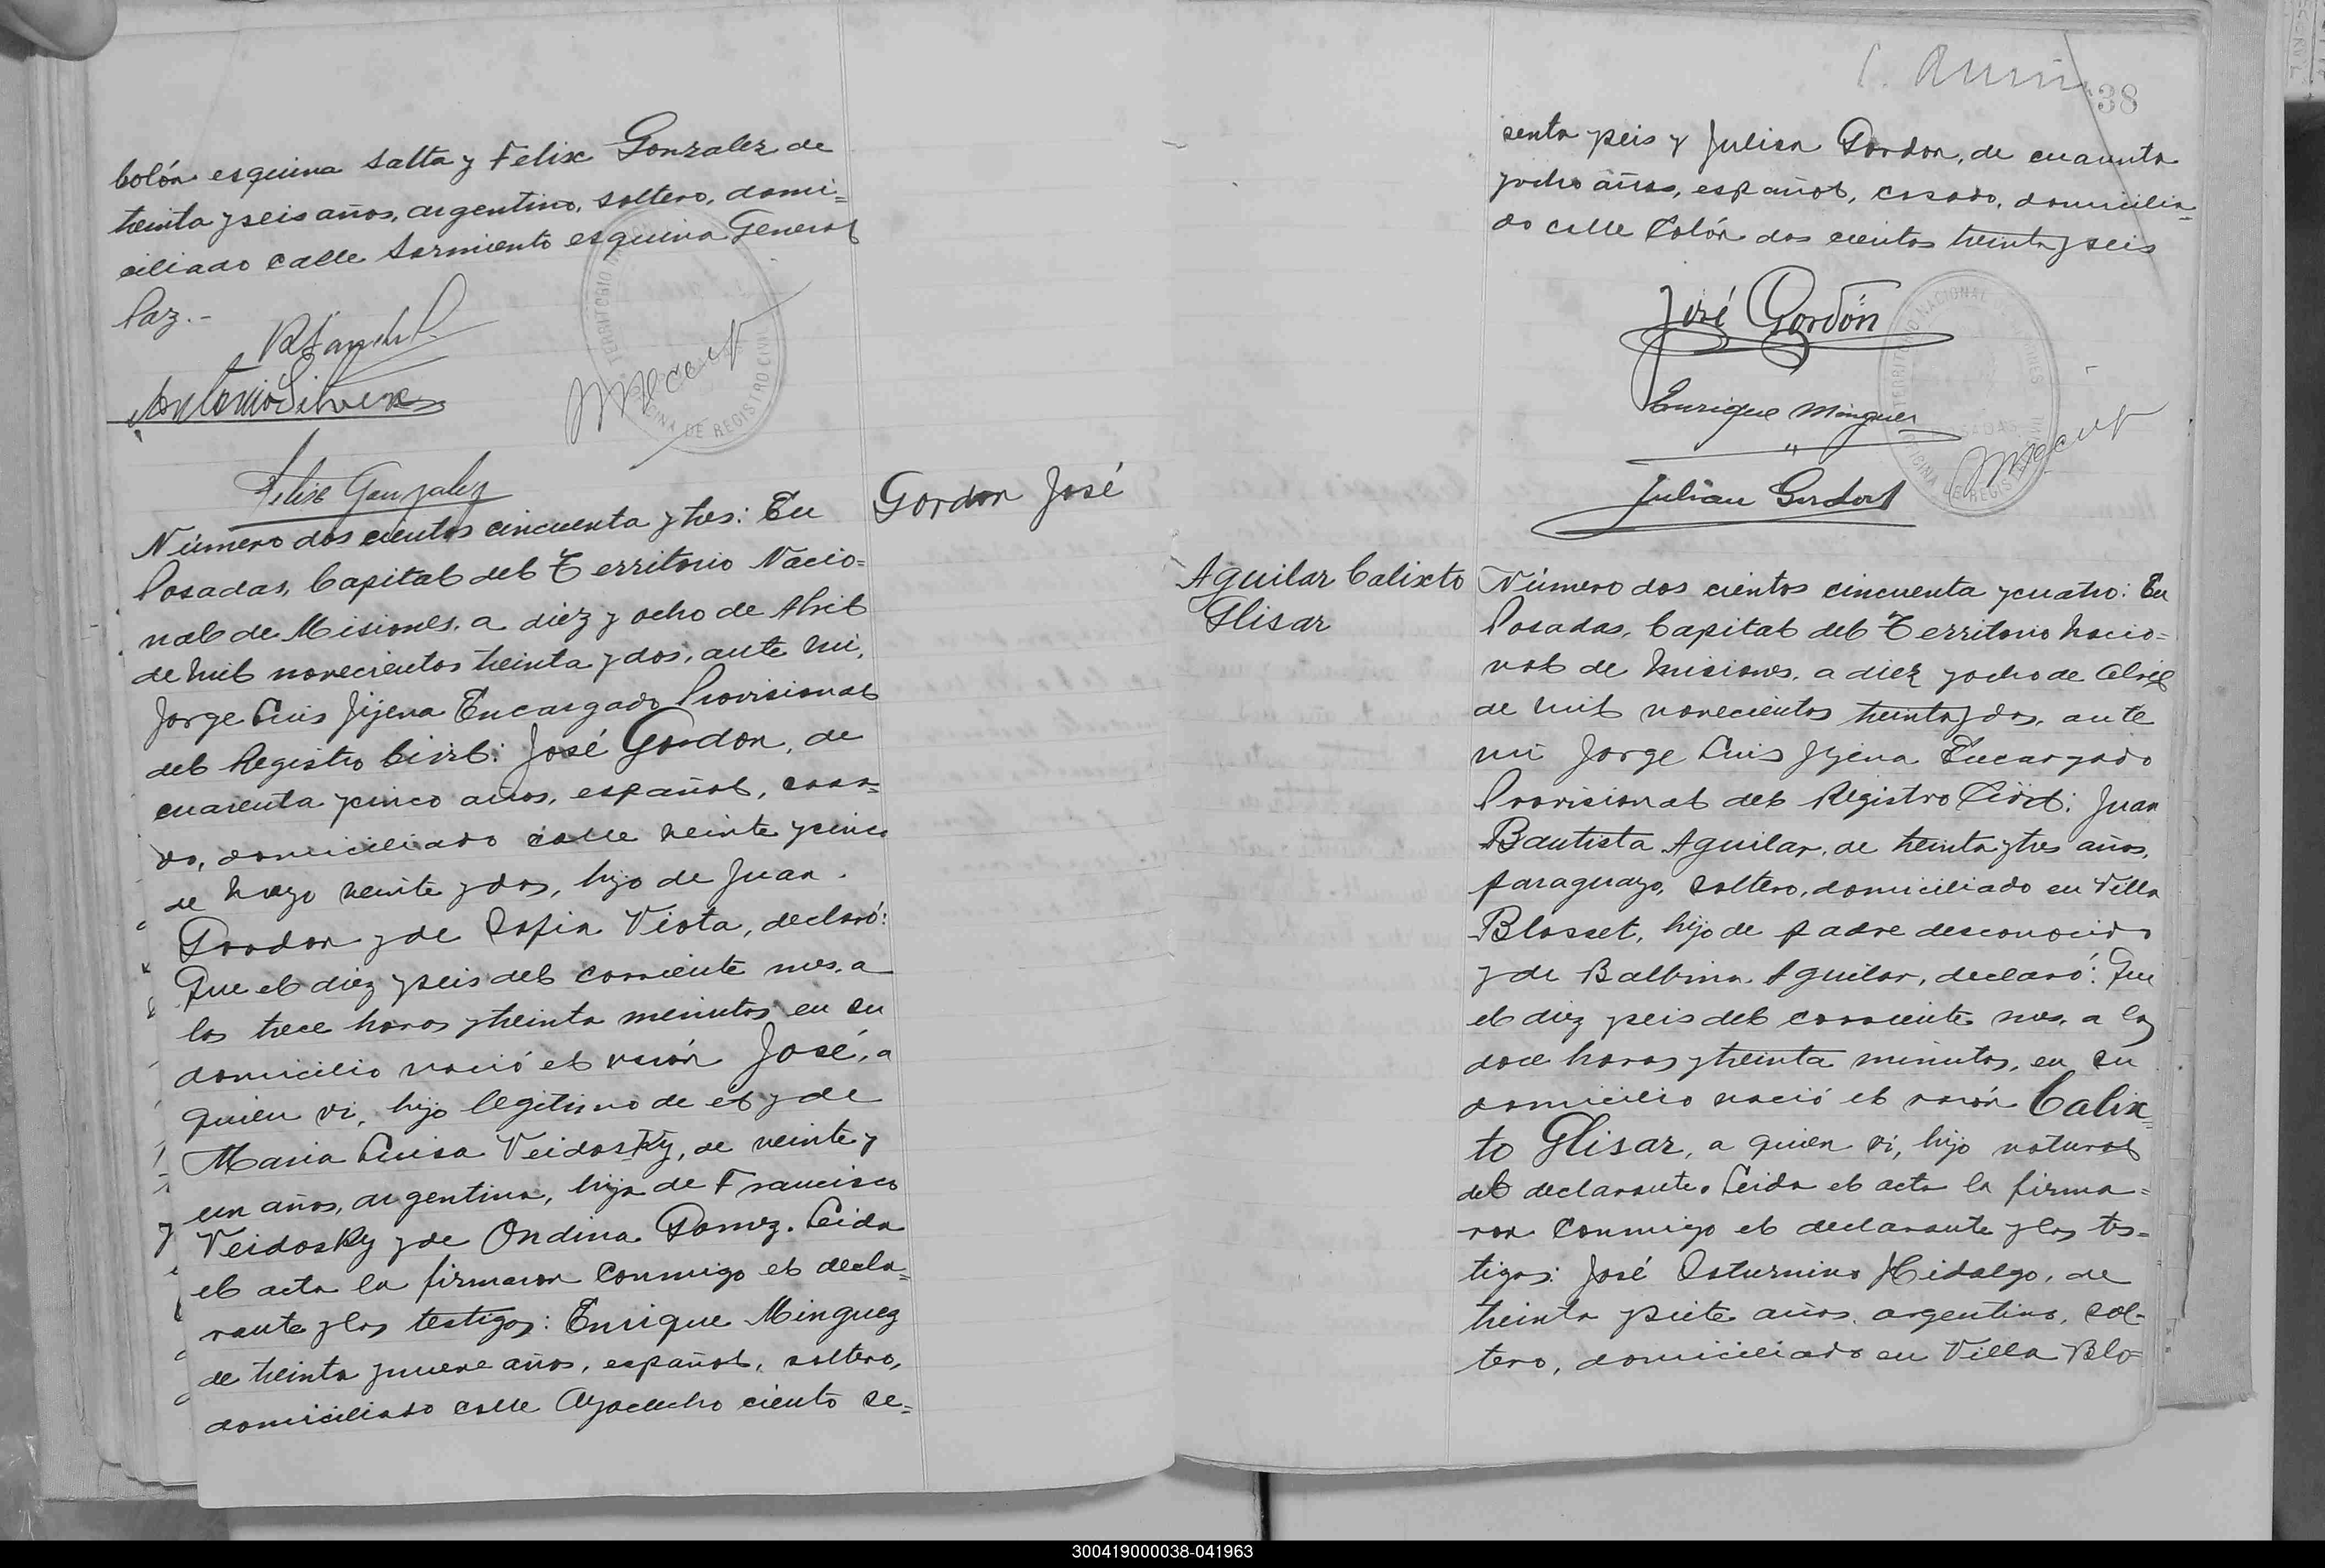 Colón esquina Salta y Felix Gonzalez de
treinta y seis años, argentino, soltero, domi=
ciliado calle Sarmiento esquina General
Paz.-
Antonio Silvera
Felix Gonzalez
TERRITORIO
OFICINA DE REGISTRO CIVIL
Número dos cientos cincuenta y tres: En
Posadas, Capital del Territorio Nacio=
nal de Misiones, a diez y ocho de Abril
de mil novecientos treinta y dos, ante mi,
Jorge Luis Jijena Encargado Provisional
del Registro Civil: José Gordon, de
cuarenta y cinco años, español, casa=
do, domiciliado calle veinte y cinco
de Mayo veinte y dos, hijo de Juan
Gordon y de Sofia Viota, declaró:
Que el diez y seis del corriente mes, a
las trece horas y treinta minutos en su
domicilio nació el varón José, a
quien vi, hijo legítimo de el y de
Maria Luisa Veidosky, de veinte y
un años, argentina, hija de Francisco
Veidosky y de Ondina Gomez. Leida
el acta la firmaron conmigo el decla=
rante y los testigos: Enrique Minguez
de treinta y nueve años, español, soltero,
domiciliado calle Ayacucho ciento se=
Gordon José
38
senta y seis y Julian Gordon, de cuarenta
y ocho años, español, casado, domicilia=
do calle Colón dos cientos treinta y seis
José Gordón
Enrique Minguez
Julian Gordon
TERRITORIO NACIONAL DE MISIONES
POSADAS
OFICINA DE REGISTRO CIVIL
Aguilar Calixto
Glisar
Número dos cientos cincuenta y cuatro: En
Posadas, Capital del Territorio Nacio=
nal de Misiones, a diez y ocho de Abril
de mil novecientos treinta y dos, ante
mi Jorge Luis Jijena Encargado
Provisional del Registro Civil: Juan
Bautista Aguilar, de treinta y tres años,
paraguayo, soltero, domiciliado en Villa
Blosset, hijo de padre desconocido
y de Balbina Aguilar, declaró: Que
el diez y seis del corriente mes, a las
doce horas y treinta minutos, en su
domicilio nació el varón Calix=
to Glisar, a quien vi, hijo natural
del declarante. Leida el acta la firma=
ron conmigo el declarante y los tes=
tigos: José Saturnino Hidalgo, de
treinta y siete años, argentino, sol-
tero, domiciliado en Villa Blo=
300419000038-041963